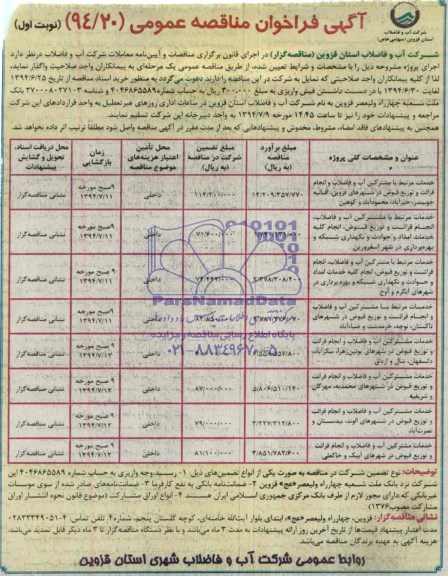 شرکت آب و فاضلاب
استان قزوین (سهامی خاص)
آگهی فراخوان مناقصه عمومی (۹۴/۲۰) (نوبت اول)
شرکت آب و فاضلاب استان قزوین (مناقصه‌گزار) در اجرای قانون برگزاری مناقصات و آیین‌نامه معاملات شرکت آب و فاضلاب درنظر دارد
اجرای پروژه مشروحه ذیل را با مشخصات و شرایط تعیین شده، از طریق مناقصه عمومی یک مرحله‌ای به پیمانکاران واجد صلاحیت واگذار نماید،
لذا از کلیه پیمانکاران واجد صلاحیتی که تمایل به شرکت در این مناقصه را دارند دعوت می‌گردد به منظور خرید اسناد مناقصه از تاریخ ۱۳۹۴/۶/۲۵
لغایت ۱۳۹۴/۶/۳۰ با در دست داشتن فیش واریزی به مبلغ ۳۰۰/۰۰۰ ریال به حساب شماره ۴۰۴۶۸۶۵۵۸۹ و شناسه ۳۷۰۰۰۸۰۲۷۱۰۳ بانک
ملت شعبه چهارراه ولیعصر قزوین به نام شرکت آب و فاضلاب استان قزوین در ساعات اداری روزهای غیرتعطیل به واحد قراردادهای این شرکت
مراجعه و پیشنهادات خود را نیز تا ساعت ۱۴:۴۵ مورخه ۱۳۹۴/۷/۹ به واحد دبیرخانه این شرکت تسلیم نمایند.
همچنین به پیشنهادهای فاقد امضاء، مشروط، مخدوش و پیشنهادهایی که بعد از مدت مقرر در آگهی مناقصه واصل شود مطلقا ترتیب اثر داده نخواهد شد.
عنوان و مشخصات کلی پروژه | مبلغ برآورد مناقصه (به ریال) | مبلغ تضمین شرکت در مناقصه (به ریال) | محل تأمین اعتبار هزینه‌های موضوع مناقصه | زمان بازگشایی | محل دریافت اسناد، تحویل و گشایش پیشنهادات
خدمات مرتبط با مشترکین آب و فاضلاب و انجام
قرائت و توزیع قبوض در شهرهای قزوین، اقبالیه
داخلی | ۹ صبح مورخه ۱۳۹۴/۷/۱۱ | نشانی مناقصه‌گزار
خدمات مرتبط با مشترکین آب و فاضلاب،
انجام قرائت و توزیع قبوض، انجام کلیه
خدمات امداد و حوادث و نگهداری شبکه و
بهره‌برداری در شهر اسفرورین
داخلی | ۹ صبح مورخه ۱۳۹۴/۷/۱۱ | نشانی مناقصه‌گزار
خدمات مرتبط با مشترکین آب و فاضلاب، انجام
قرائت و توزیع قبوض، انجام کلیه خدمات امداد
و حوادث و نگهداری شبکه و بهره‌برداری در
شهرهای آبگرم و آوج
داخلی | ۹ صبح مورخه ۱۳۹۴/۷/۱۱ | نشانی مناقصه‌گزار
خدمات مرتبط با مشترکین آب و فاضلاب
و انجام قرائت و توزیع قبوض در شهرهای
تاکستان، نرجه، خرمدشت و ضیاءآباد
داخلی | ۹ صبح مورخه ۱۳۹۴/۷/۱۱ | نشانی مناقصه‌گزار
خدمات مشترکین آب و فاضلاب و انجام قرائت
و توزیع قبوض در شهرهای بوئین‌زهرا، سگزآباد،
دانسفهان، شال و ارداق
داخلی | ۹ صبح مورخه ۱۳۹۴/۷/۱۲ | نشانی مناقصه‌گزار
خدمات مشترکین آب و فاضلاب و انجام قرائت
و توزیع قبوض در شهرهای محمدیه، مهرگان
و شریفیه
۸۷/۰۰۰/۰۰۰ | داخلی | ۹ صبح مورخه ۱۳۹۴/۷/۱۲ | نشانی مناقصه‌گزار
خدمات مشترکین آب و فاضلاب و انجام قرائت
و توزیع قبوض در شهرهای الوند، بیدستان و
نصرت‌آباد
۷۹/۰۰۰/۰۰۰ | داخلی | ۹ صبح مورخه ۱۳۹۴/۷/۱۲ | نشانی مناقصه‌گزار
خدمات مشترکین آب و فاضلاب و انجام قرائت
و توزیع قبوض در شهرهای آبیک و خاکعلی
۸۱/۱۰۰/۰۰۰ | داخلی | ۹ صبح مورخه ۱۳۹۴/۷/۱۲ | نشانی مناقصه‌گزار
ParsNamadData
پایگاه اطلاع رسانی مناقصه و مزایده
۰۲۱-۸۸۳۴۹۶۷۰-۵
توضیحات: نوع تضمین شرکت در مناقصه به صورت یکی از انواع تضمین‌های ذیل ۱- رسید وجه واریزی به حساب شماره ۴۰۴۶۸۶۵۵۸۹ این
شرکت نزد بانک ملت شعبه چهارراه ولیعصر «عج» قزوین ۲- ضمانت‌نامه بانکی به نفع کارفرما ۳- ضمانت‌نامه‌های صادر شده از سوی موسسات
غیربانکی که دارای مجوز لازم از طرف بانک مرکزی جمهوری اسلامی ایران هستند ۴- انواع اوراق مشارکت (موضوع قانون نحوه انتشار اوراق
مشارکت مصوب ۱۳۷۶)
نشانی مناقصه‌گزار: قزوین، چهارراه ولیعصر «عج»، ابتدای بلوار آیت‌الله خامنه‌ای، کوچه گلستان پنجم، شماره ۴، تلفن تماس: ۴-۰۲۸۳۳۳۴۹۰۵۱
مدت اعتبار پیشنهاد قیمت‌ها از تاریخ آخرین روز ارائه پیشنهادات به مدت ۳ ماه می‌باشد و با نظر دستگاه مناقصه‌گزار تا ۳ ماه دیگر قابل تمدید می‌باشد.
هزینه آگهی به عهده برندگان مناقصه می‌باشد.
روابط عمومی شرکت آب و فاضلاب شهری استان قزوین